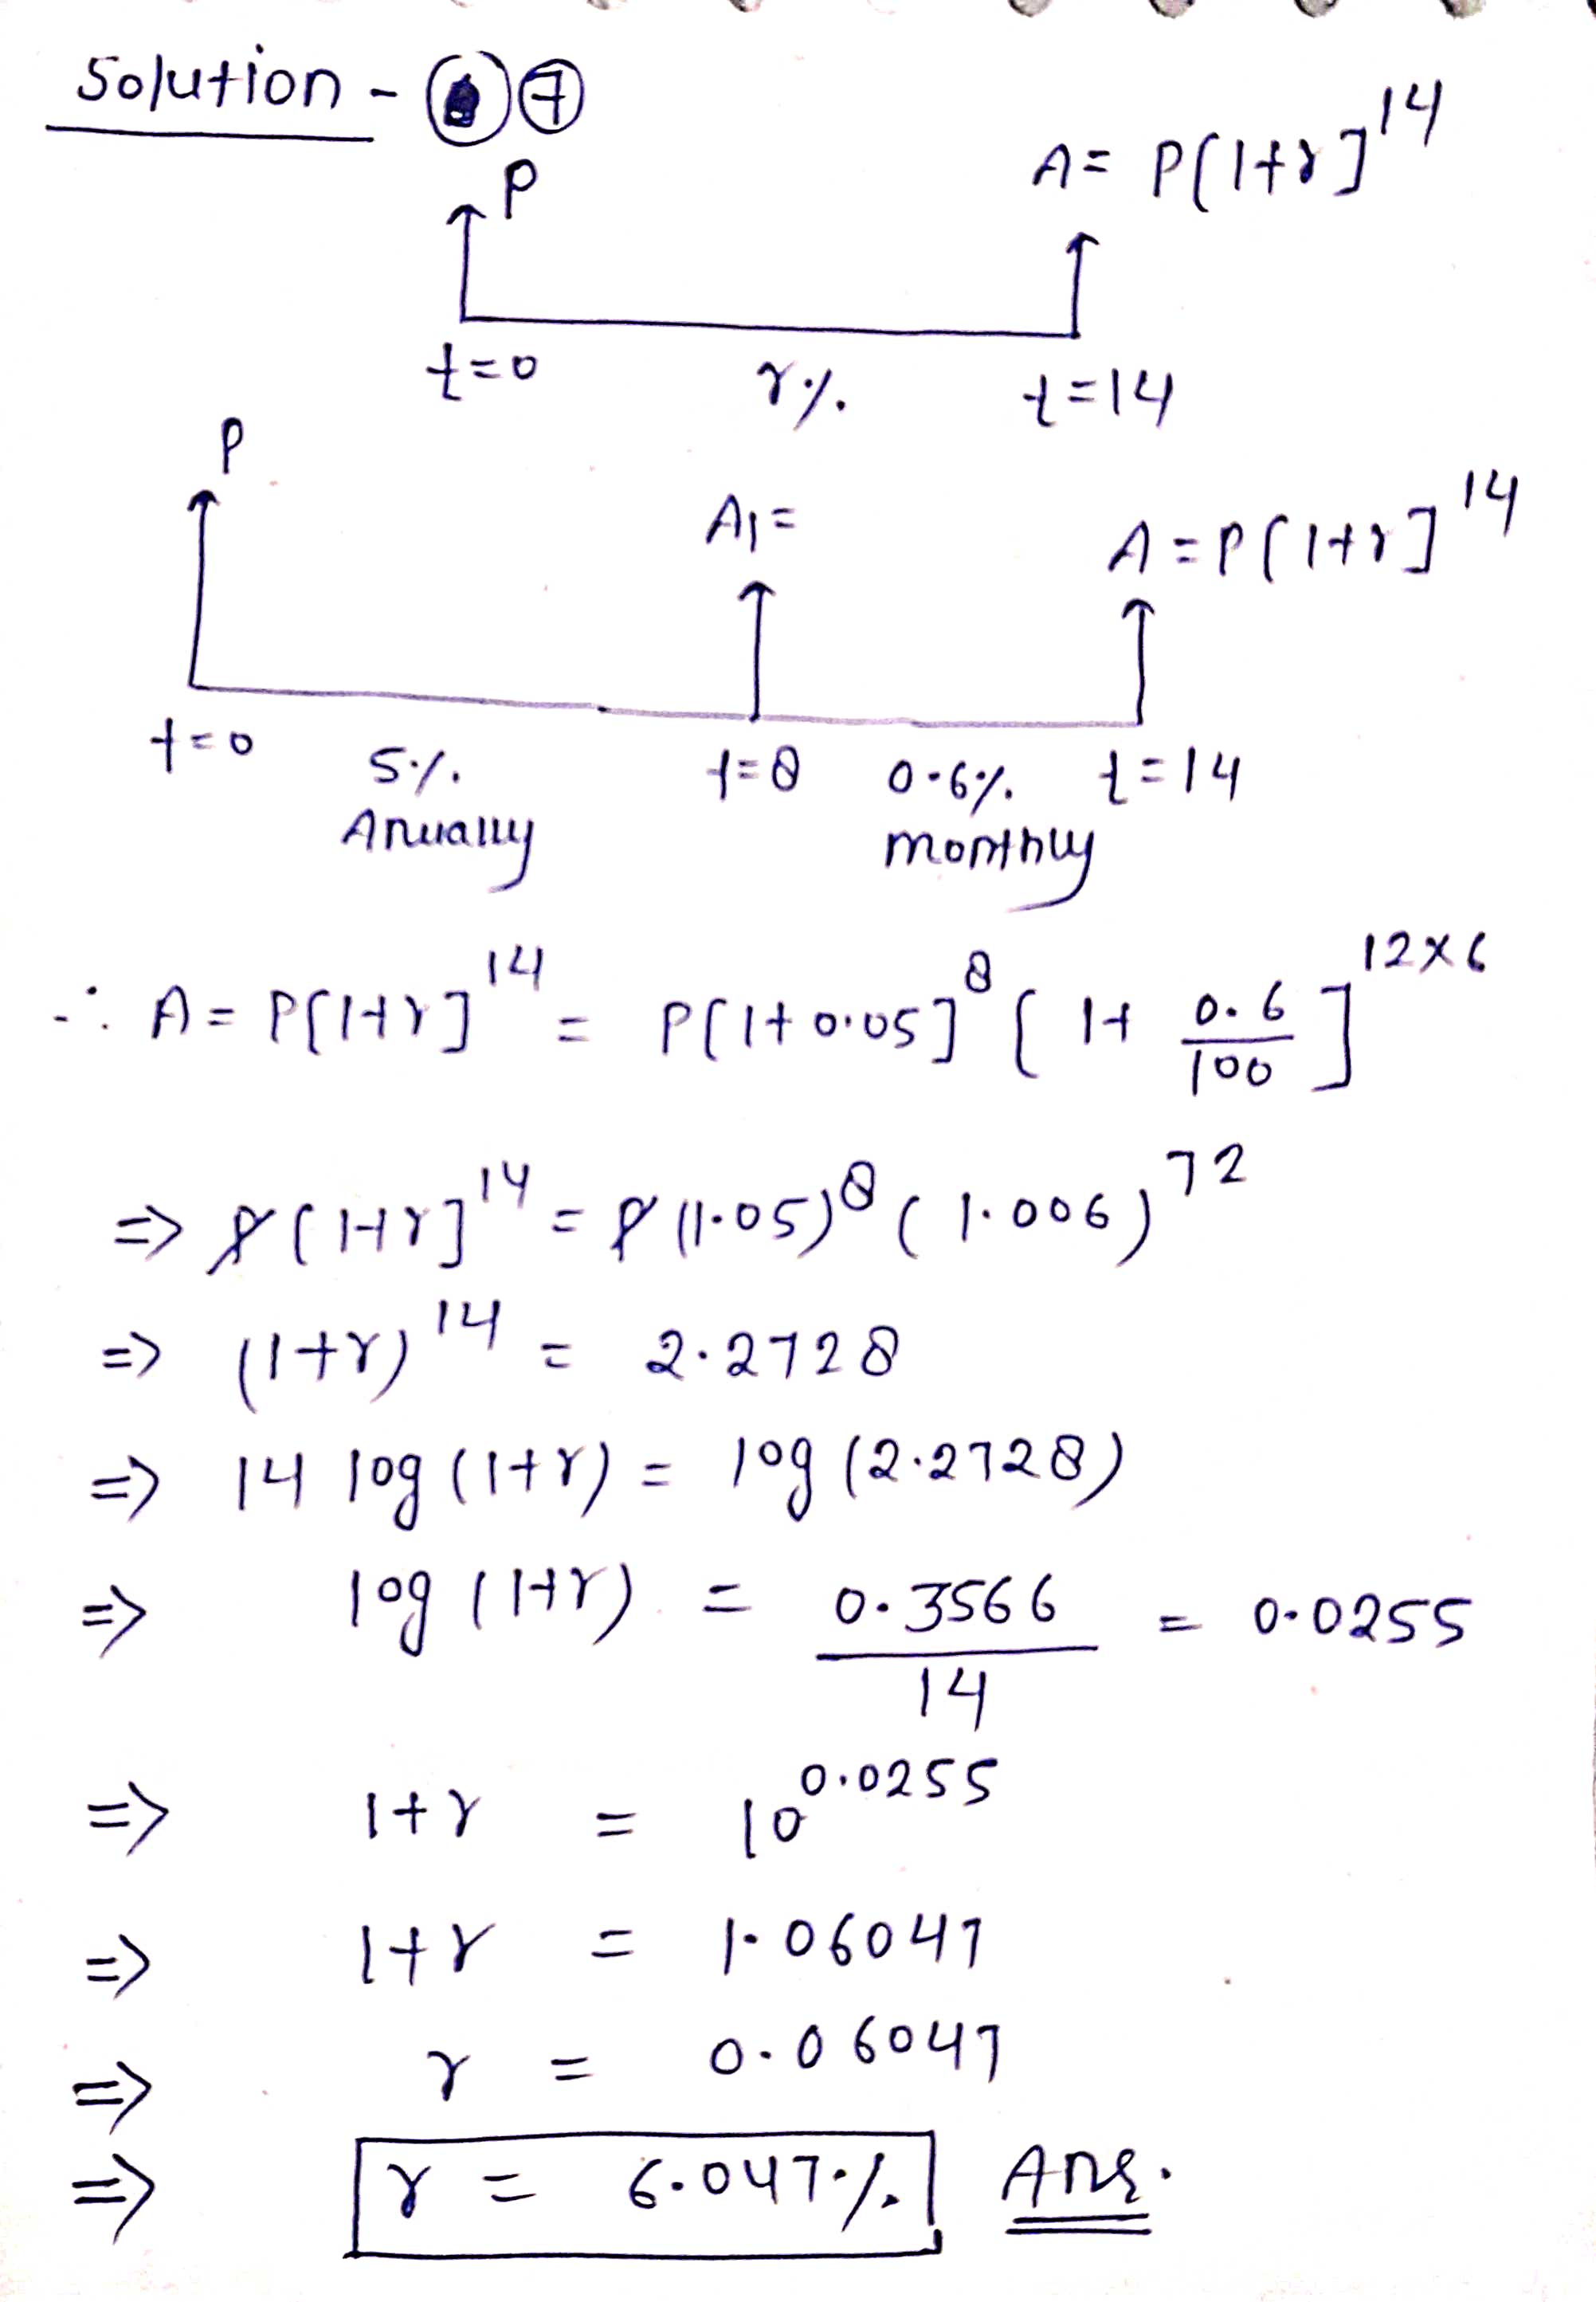 Solution - ⑦
P
A = P[1+r]^14
t=0 r% t=14
P
A1 =
A = P[1+r]^14
t=0 5% t=8 0.6% t=14
Anually monthly
∴ A = P[1+r]^14 = P[1+0.05]^8 [1+ 0.6/100]^12×6
=> P[1+r]^14 = P(1.05)^8 (1.006)^72
=> (1+r)^14 = 2.2728
=> 14 log (1+r) = log (2.2728)
=> log (1+r) = 0.3566/14 = 0.0255
=> 1+r = 10^0.0255
=> 1+r = 1.06047
=> r = 0.06047
=> r = 6.047% Ans.